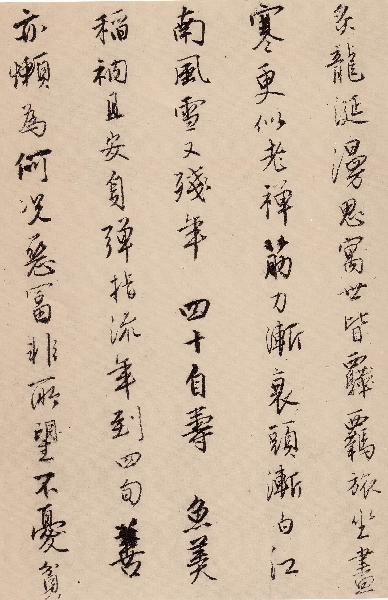 炙龍涎漫思寓世皆羈旅坐盡
寒更似老禪筋力漸衰頭漸白江
南風雪又殘年 四十自壽 魚羹
稻衲且安身彈指流年到四旬善
亦懶為何況惡富非所望不憂貧